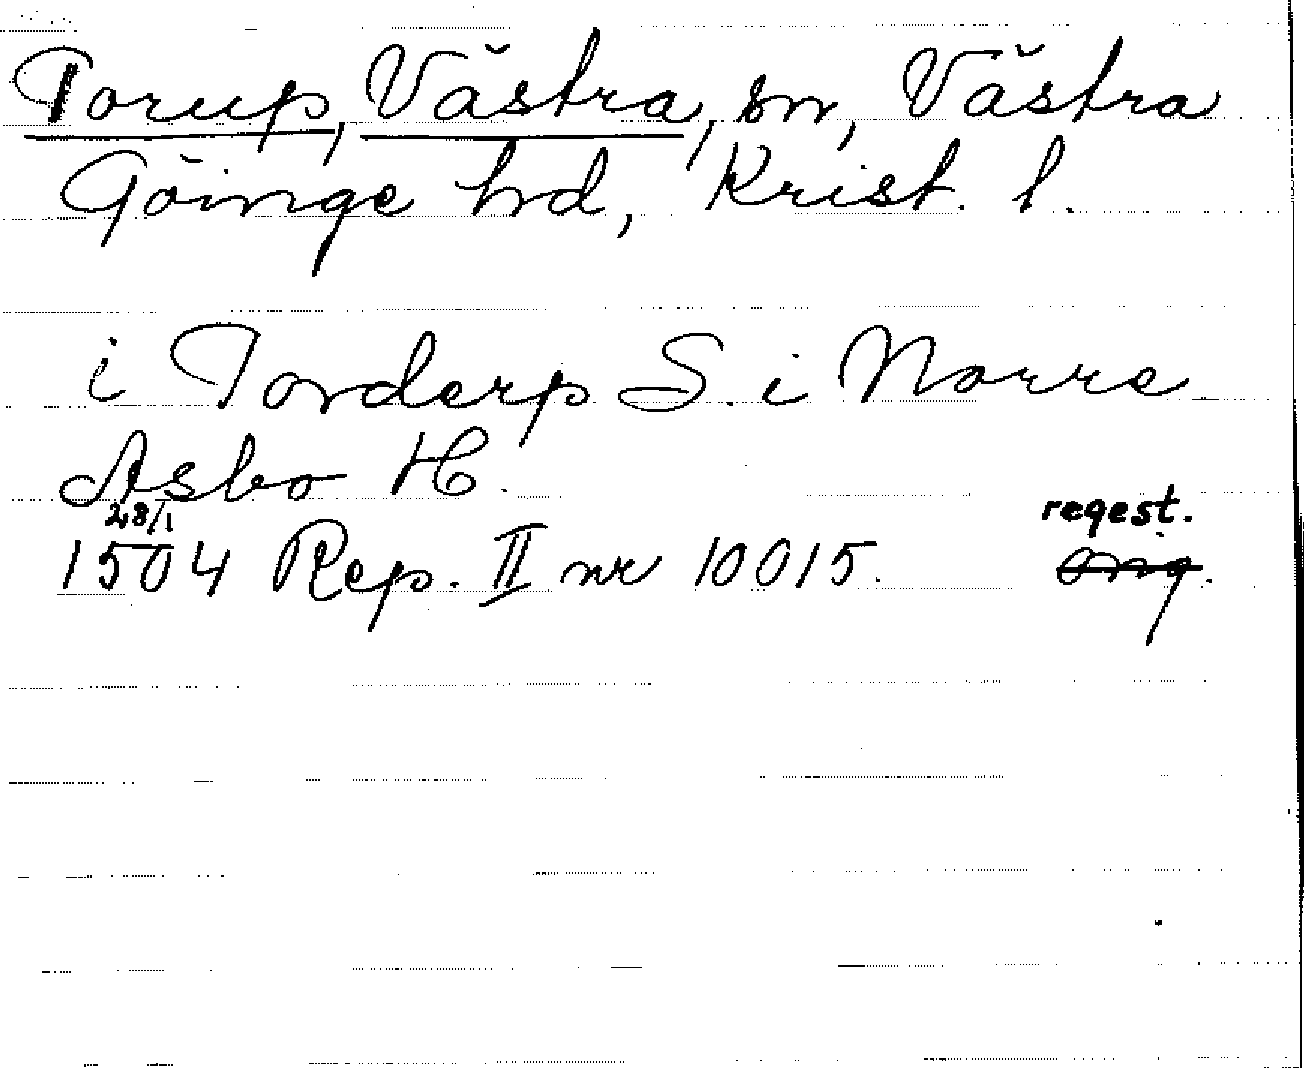 Torup, Västra, sn, Västra
Göinge hd, Krist. l.
i Torderp S. i Norre
Asbo H.
28/1
1504 Rep. II nr 10015. regest.